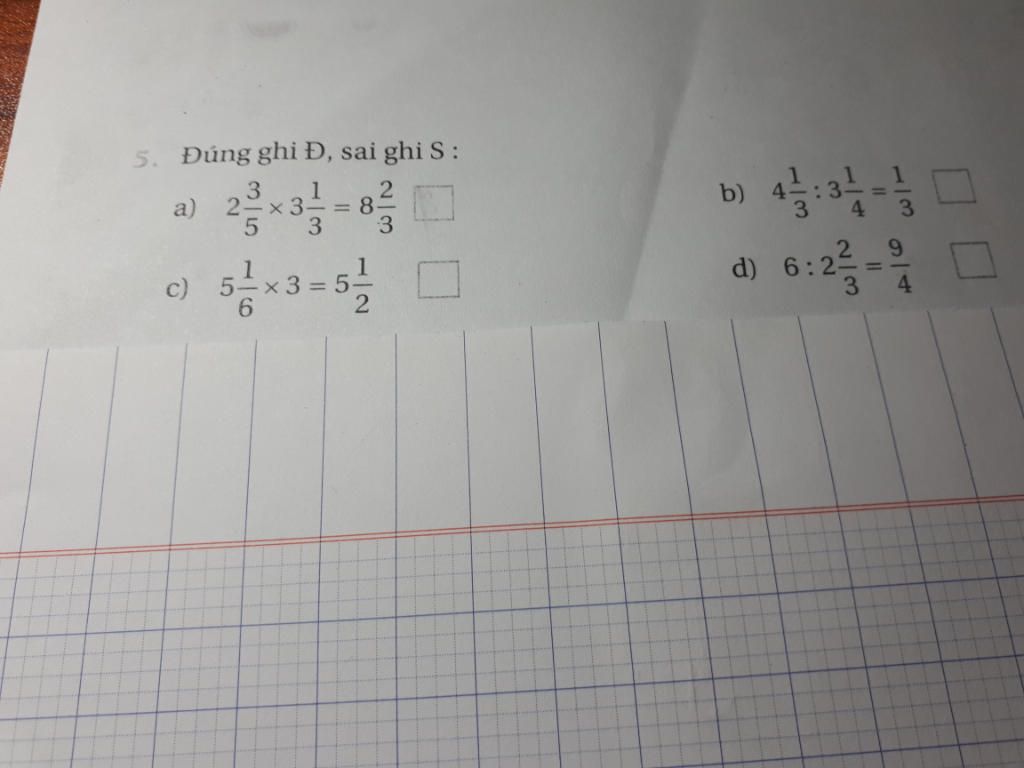 5. Đúng ghi Đ, sai ghi S :
a) 2 3/5 × 3 1/3 = 8 2/3
b) 4 1/3 : 3 1/4 = 1/3
c) 5 1/6 × 3 = 5 1/2
d) 6 : 2 2/3 = 9/4